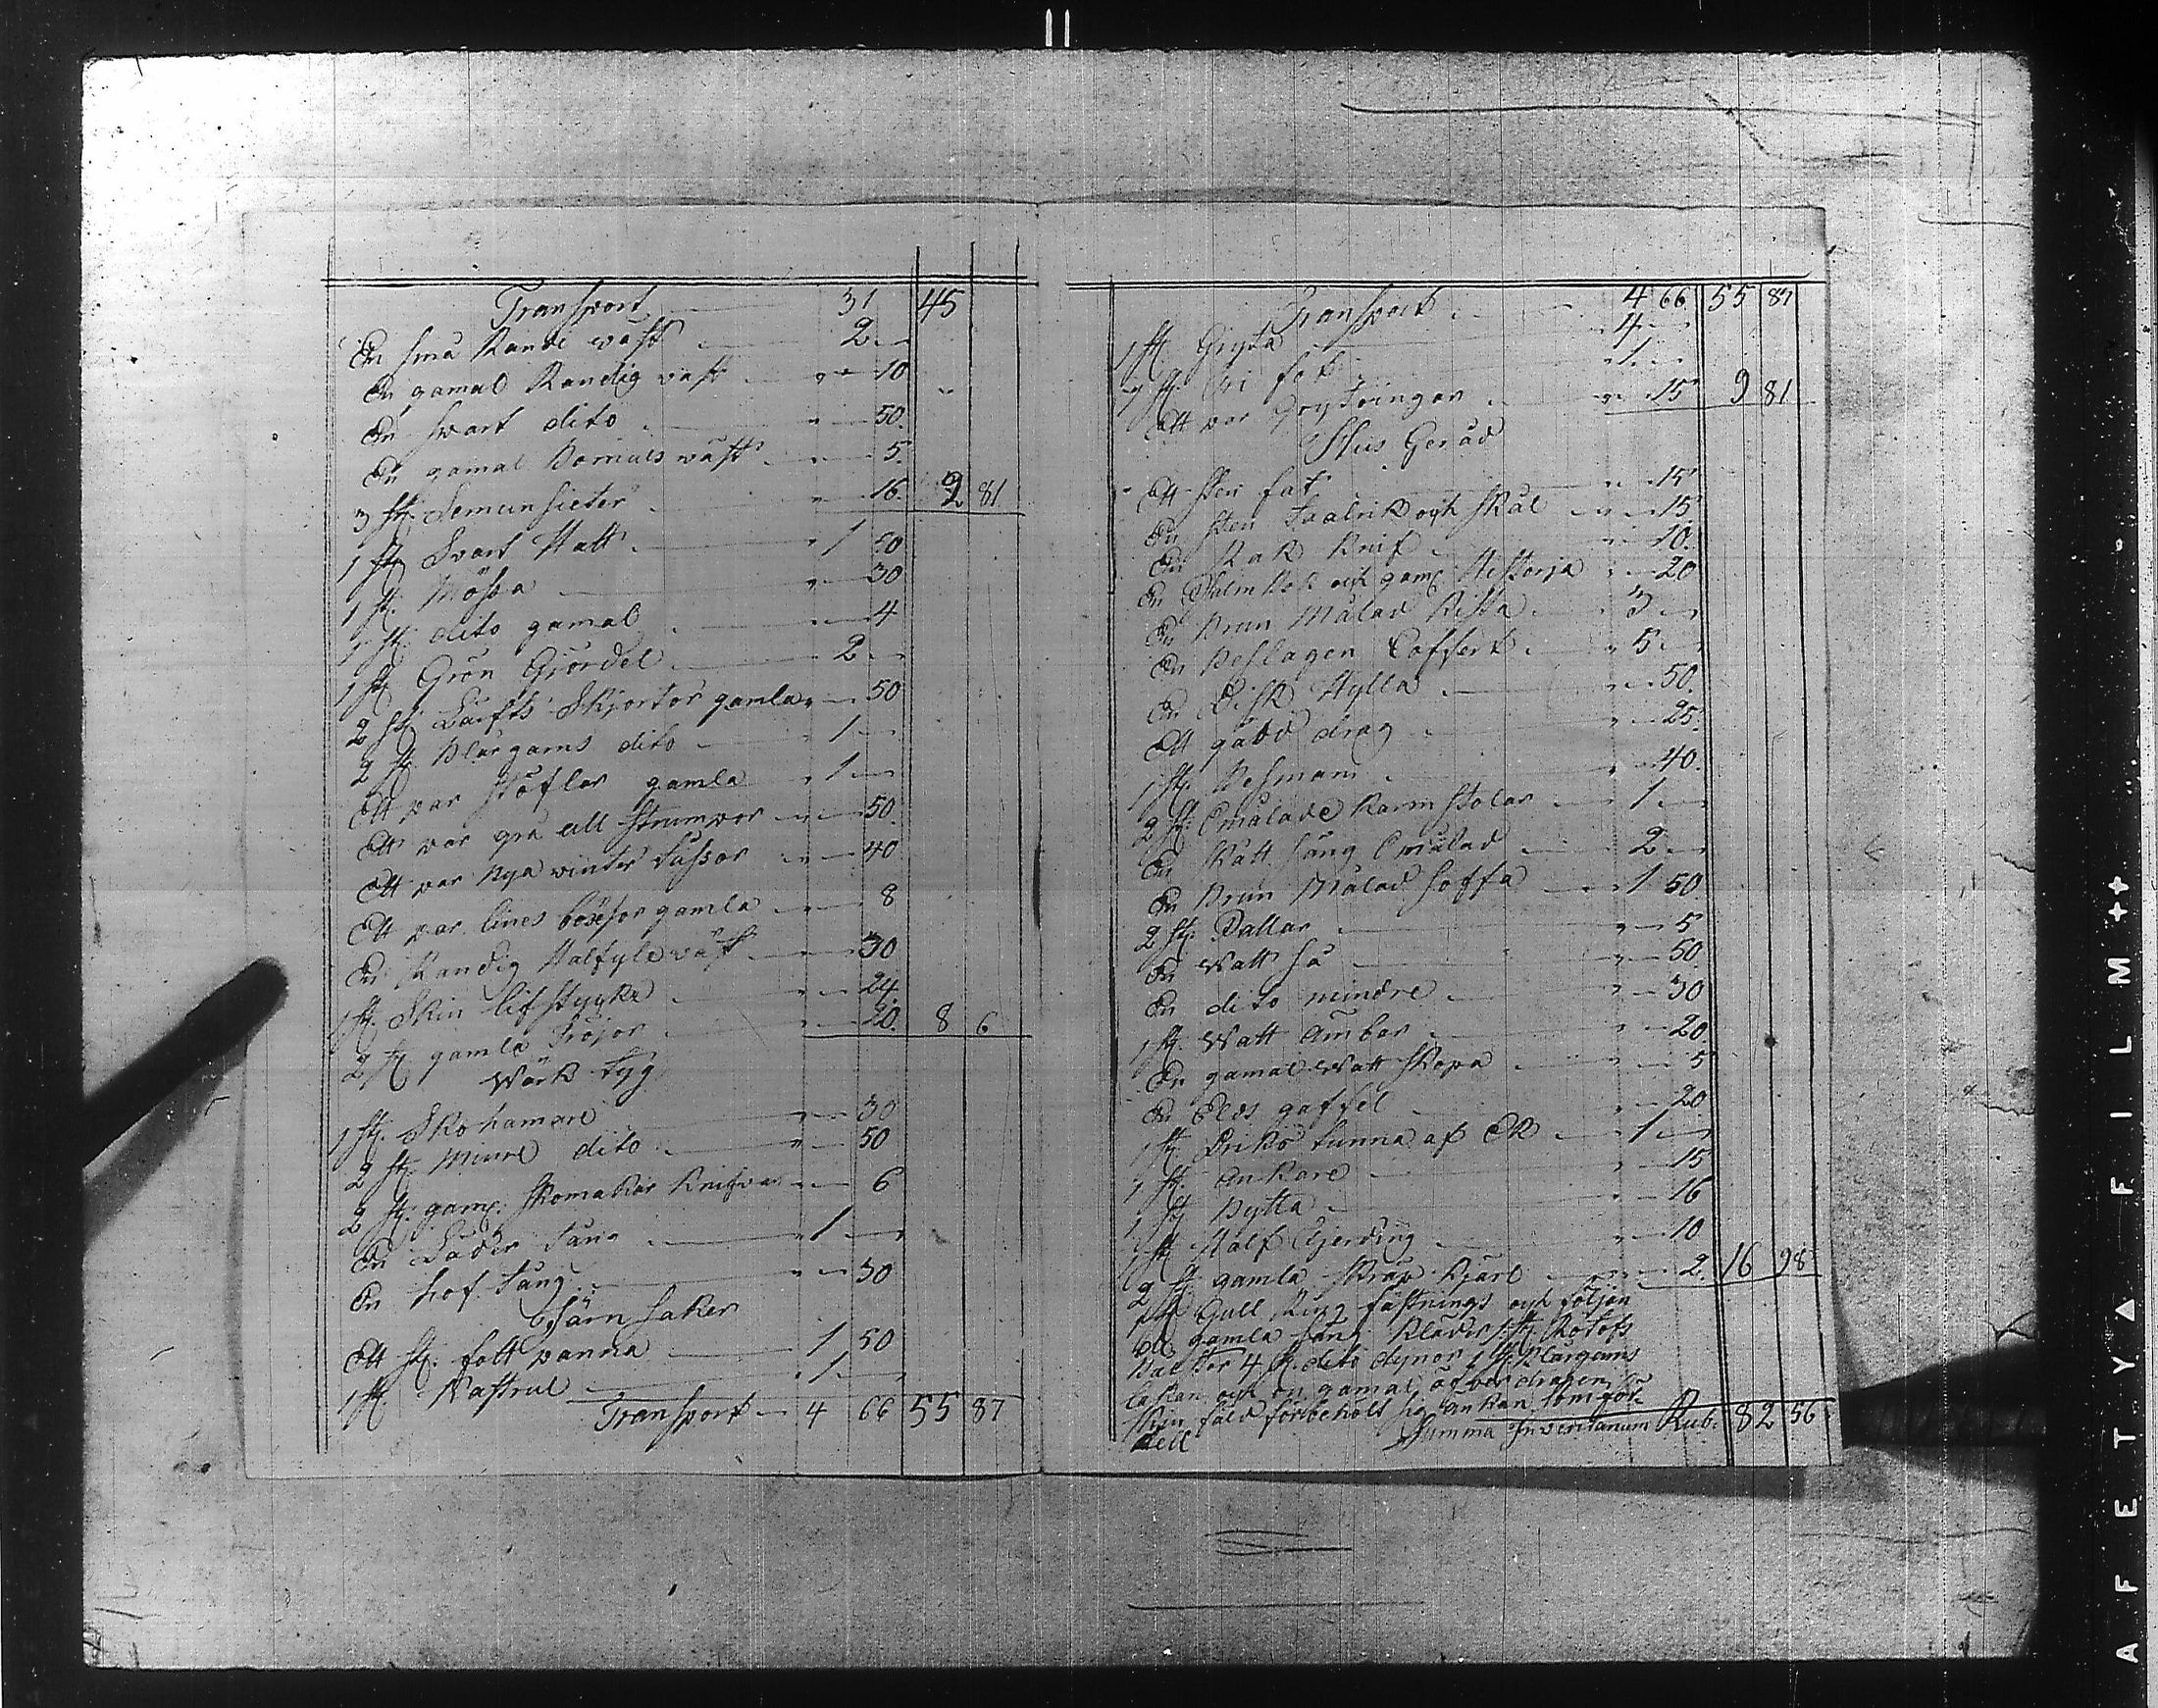 Transport 31 45
En små Randi wäst 2
En gamal Randig wäst 10
En swart dito 50
En gamal Bomuls wäst 5
3 st. 16 2 81
1 st. Svart Hatt 1 50
1 st. Mössa 30
1 st. dito gamal 4
1 st. Grön Gjördel 2
2 st. Lärfts Skjortor gamla 50
2 st. Blärgarns dito 1
Ett par stöflor gamla 1
Ett par grå ull strumpor 50
Ett par nya winter tussor 40
Ett par lines böxsor gamla 8
En Randig Halfyle wäst 30
1 st. Skin lifstyke 24
2 st. gamla Tröjor 20 8 6
Wärk tyg
1 st. Skohamare 30
2 st. Minre dito 50
2 st. gaml. skomakar Knifvar 6
En Läder tång 1
En hof tång 30
Järn saker
Ett st. folt panna 1 50
1 st. Kastrul 1
Transport 4 66 55 87
Transport 4 66 55 87
1 st. Gryta 4
1 st. fot 1
Ett par Grytringar 15 9 81
Hus Geråd
Ett sten fat 15
En sten taalrik och skål 15
En Rak Knif 10
En Psalm bok och gaml. Historja 20
En brun Målad Kista 3
En beslagen Coffert 5
En Disk Hylla 50
Ett drag 25
1 st. Besman 40
2 st. Omålade Karm stolar 1
En säng Omålad 2
En brun Målad soffa 1 50
2 st. Pallar 5
En Watt så 50
En dito mindre 30
1 st. Watt Ämbar 20
En gamal Watt skopa 5
En Elds gaffel 20
1 st. Driks tunna af Ek 1
1 st. Ankare 15
1 st. Bytta 16
1 st. Half Fjerding 10
2 st. gamla skräp Kjärl 2 16 98
1 st. Gull Ring fästnings och följan
de gamla säng Kläder 1 st.
4 st. dito dynor 1 st. Blärgarns
lakan och en gamal
skin fäld förbeholt sig änkan som för
dell Summa Inventarium Rub. 82 56
AFETY FILM